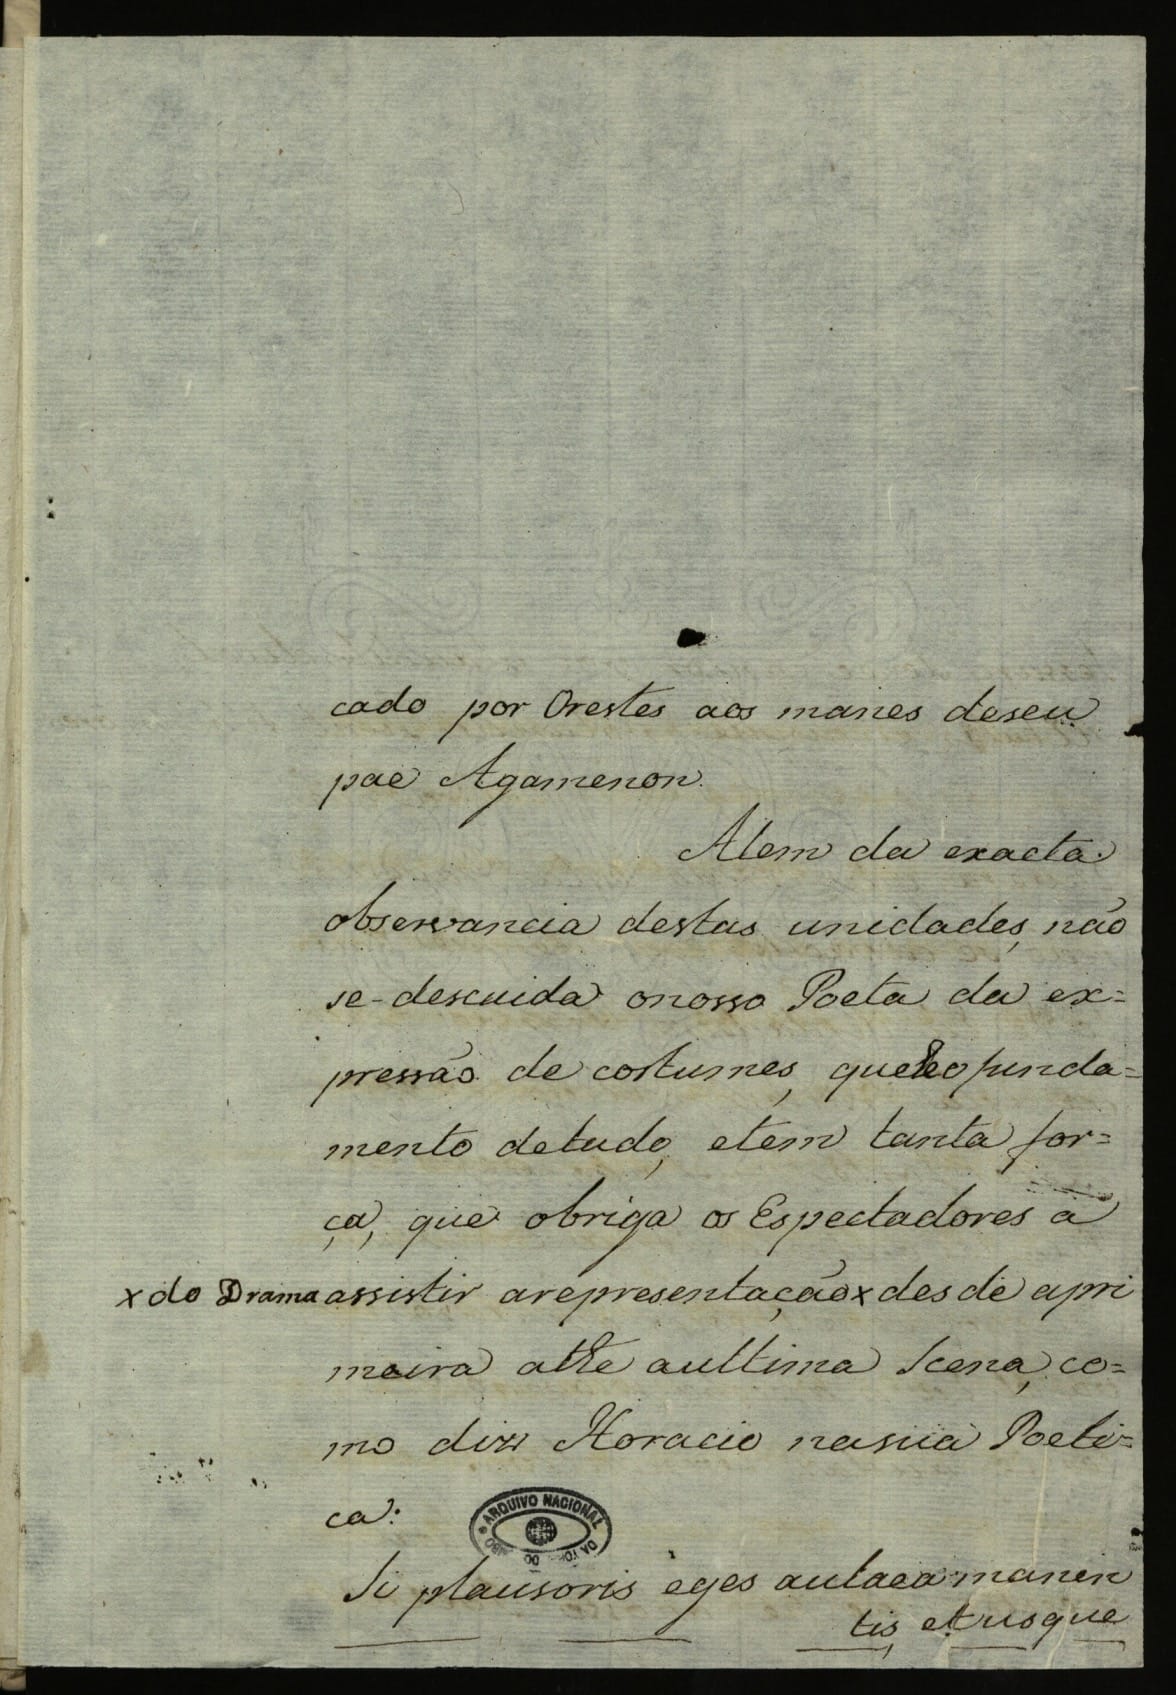 cado por Orestes aos manes deseu
pae Agamenon.
Alem da exacta
observancia destas unidades, não
se-descuida onosso Poeta da ex=
pressão de costumes, que he o funda=
mento detudo, etem tanta for=
ça, que obriga os Espectadores a
x do Drama assistir arepresentação x desde apri
meira athe aultima Scena, co=
mo diz Horacio nasua Poeti=
ca:
ARQUIVO NACIONAL DA TORRE DO TOMBO
Si plausoris eges aulaea manen
tis, et usque